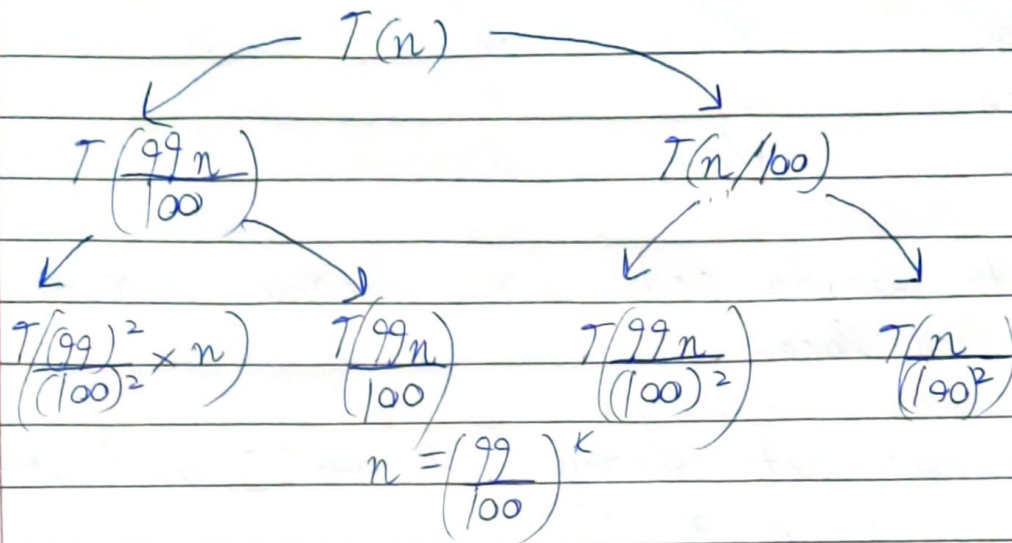 T(n)
T(99n/100) T(n/100)
T((99)²/(100)² × n) T(99n/100) T(99n/(100)²) T(n/(100)²)
n = (99/100)^K